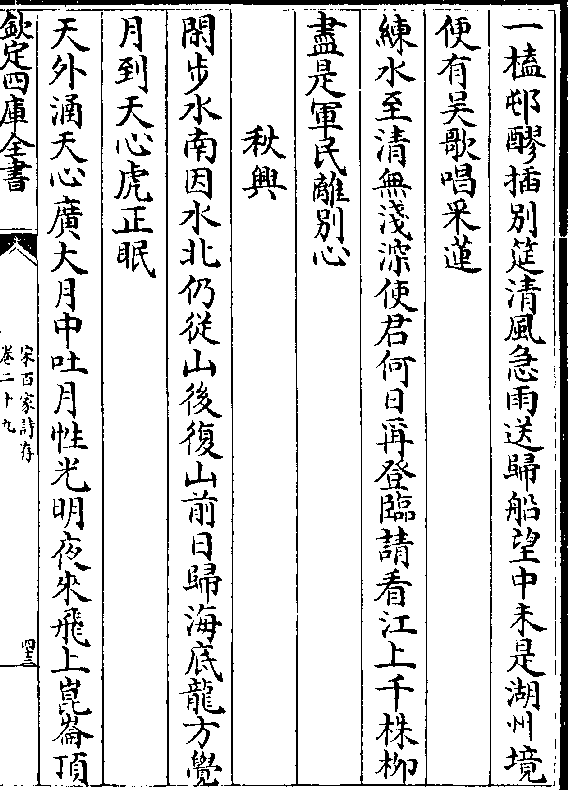 一榼邨醪揷别筵清風急雨送歸船望中未是湖州境
便有吴歌唱采蓮
練水至清無淺深使君何日再登臨請看江上千株柳
盡是軍民離别心
秋興
閒步水南因水北仍從山後復山前日歸海底龍方覺
月到天心虎正眠
天外涌天心廣大月中吐月性光明夜來飛上崑崙頂
欽定四庫全書
宋百家詩存
卷二十九
四三